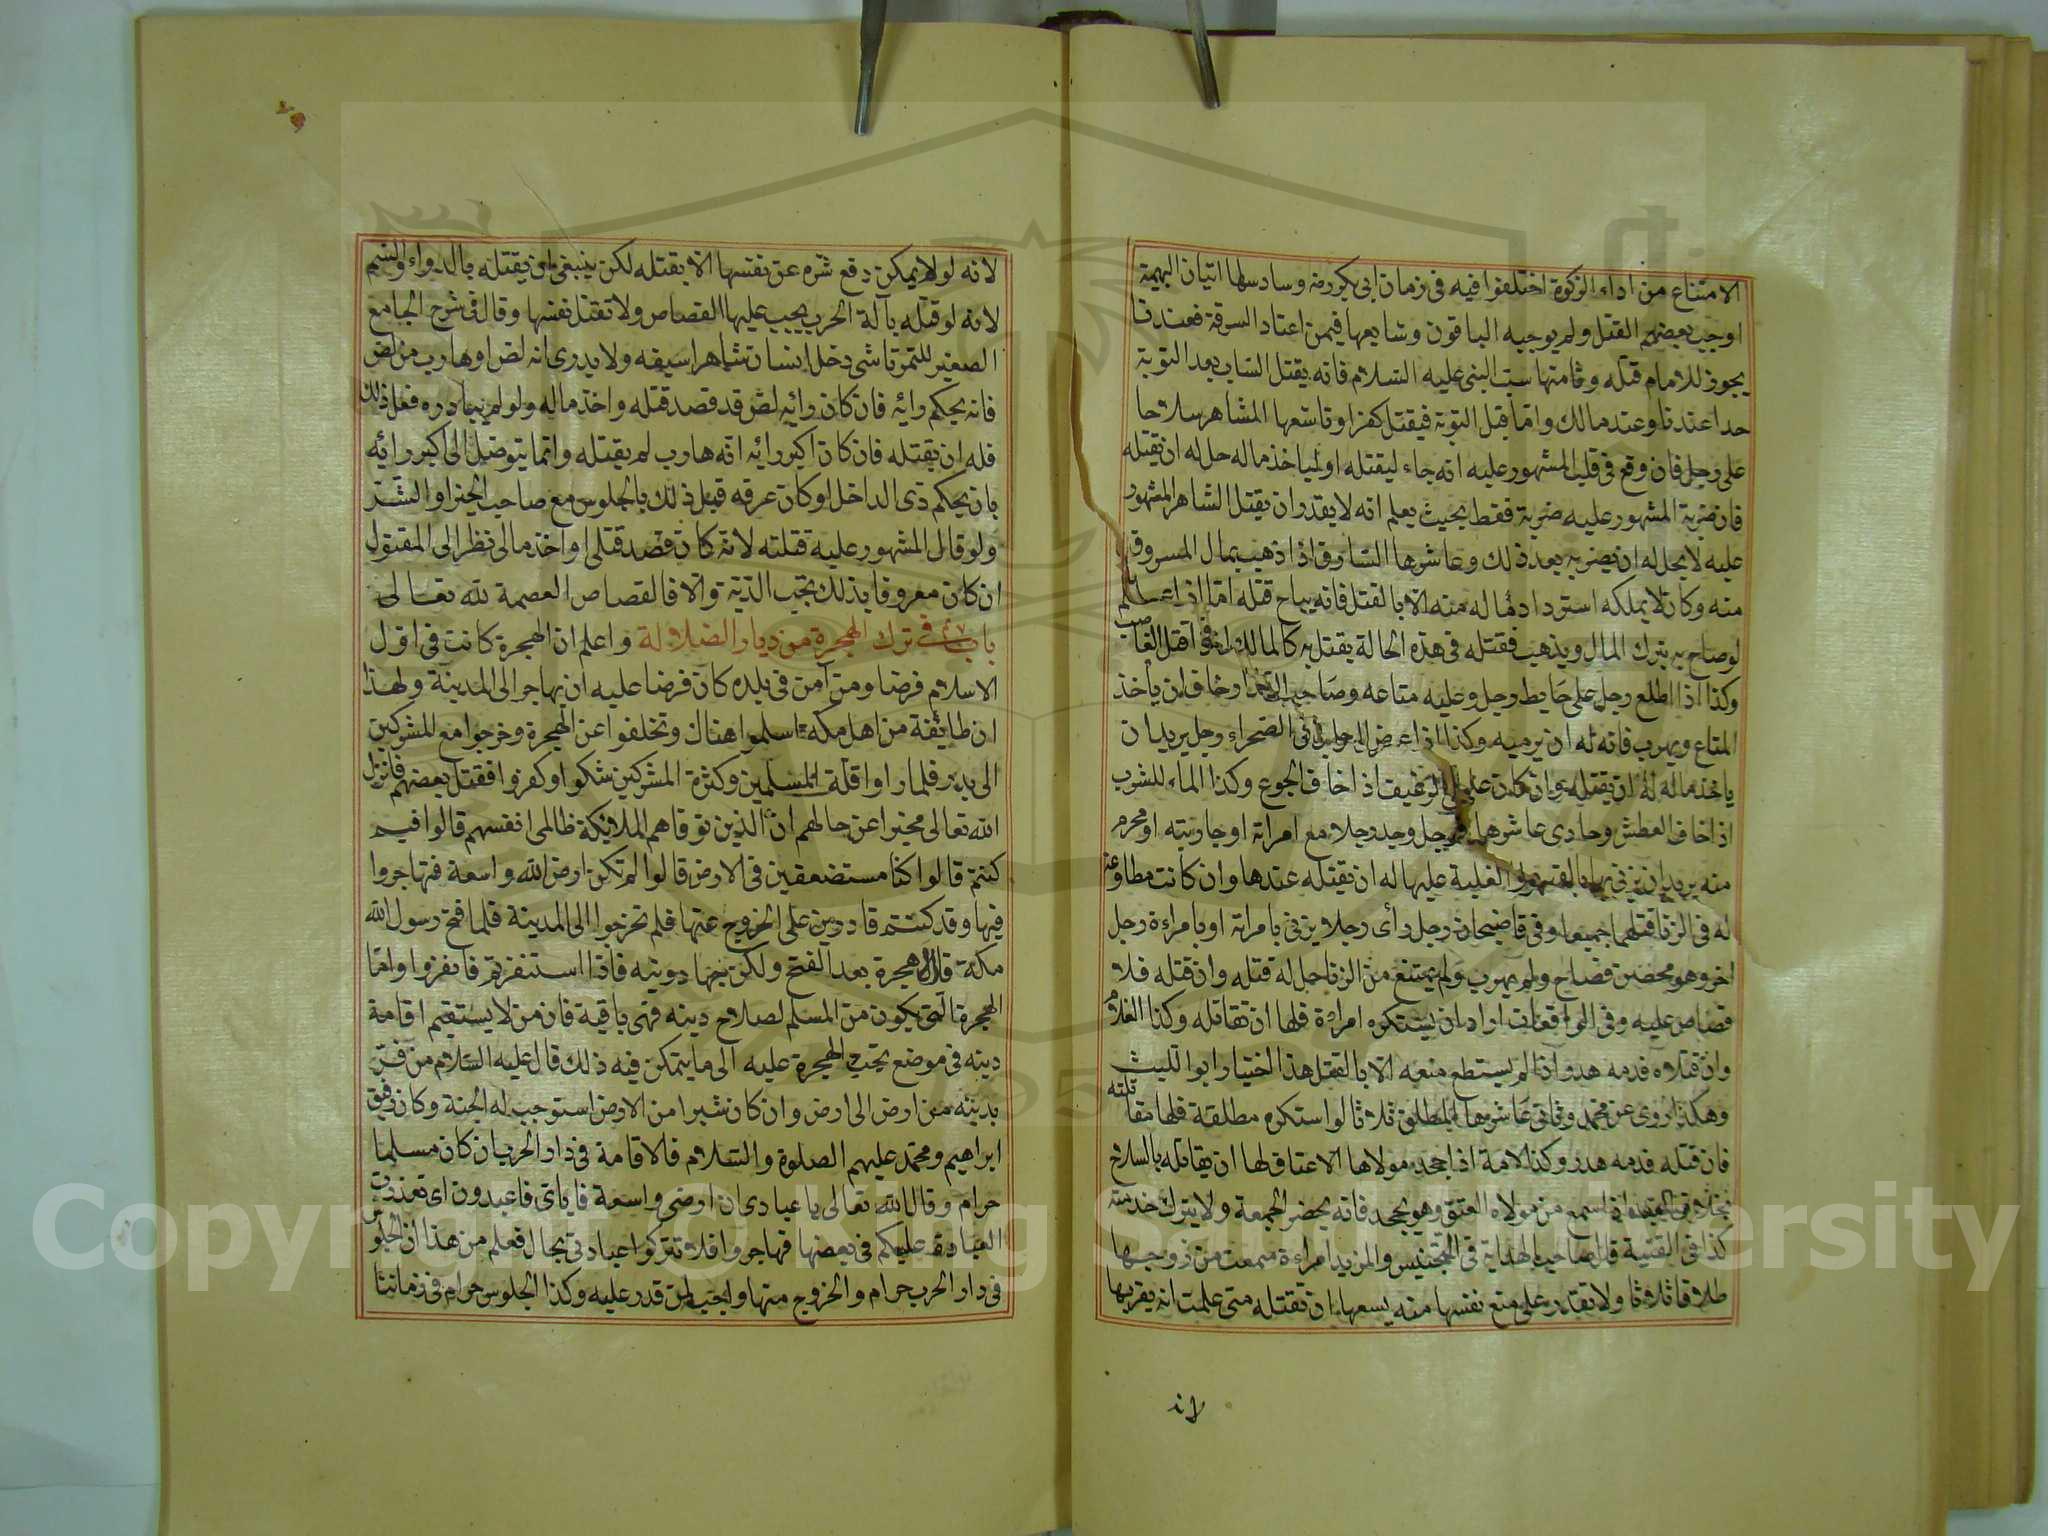 الامتناع من اداء الزكوة اختلفوا فيه فى زمان ابى بكر رضه وسادسها اتيان البهيمة
اوجب بعضهم القتل ولم يوجبه الباقون وسابعها فيمن اعتاد السرقة فعندنا
يجوز للامام قتله وثامنها سب النبى عليه السلام فانه يقتل الساب بعد التوبة
حدا عندنا وعند مالك واما قبل التوبة فيقتل كفرا وتاسعها المشاهر سلاحا
على رجل فان وقع فى قلب المشهور عليه انه جاء ليقتله او لياخذ ماله حل له ان يقتله
فان ضربة المشهور عليه ضربة فقط بحيث يعلم انه لا يقدر ان يقتل الشاهر المشهور
عليه لا يحل له ان يضربه بعد ذلك وعاشرها السارق اذا ذهب بمال المسروق
منه وكان لا يملكه استرداد ماله منه الا بالقتل فانه يباح قتله اما اذا علم
لو صاح به يترك المال ويذهب فقتله فى هذه الحالة يقتل به كالمالك اذا قتل الغاصب
وكذا اذا اطلع رجل على حايط رجل وعليه متاعه وصاحب وخاف ان يأخذ
المتاع ويهرب فانه له ان يرميه وكذا اذا عرض لرجل فى الصحراء رجل يريد ان
ياخذ ماله له ان يقتله وان كان على الرغيف اذا خاف الجوع وكذا الماء للشرب
اذا خاف العطش وحادى عاشرها رجل وجد رجلا مع امراته او جاريته او محرم
منه يريد ان يزنى بها بالقهر والغلبة عليها له ان يقتله عندها وان كانت مطاوعة
له فى الزنا قتلهما جميعا وفى قاضيخان رجل رأى رجلا يزنى بامراته او بامراءة رجل
اخر وهو محصن فصاح ولم يهرب ولم يمتنع من الزنا حل له قتله وان قتله فلا
قصاص عليه وفى الواقعات اراد ان يستكره امراءة فلها ان تقاتله وكذا الغلام
وان قتلاه فدمه هدر اذا لم يستطع منعه الا بالقتل هذا اختيار ابو الليث
وهكذا روى عن محمد وثانى عاشرها المطلق ثلاثا لو استكره مطلقة فلها مقاتلته
فان قتله فدمه هدر وكذا الامة اذا جحد مولاها الاعتاق لها ان تقاتله بالسلاح
بخلاف العبد اذا سمع من مولاه العتق وهو يجحد فانه يحضر الجمعة ولا يترك خدمته
كذا فى القنية قال صاحب الهداية فى التجنيس والمزيد امراءة سمعت من زوجها
طلاقا ثلاثا ولا تقدر على منع نفسها منه يسعها ان تقتله متى علمت انه يقربها
لانه
لانه لو لا يمكن دفع شره عن نفسها الا بقتله لكن ينبغى ان يقتله بالدواء والسم
لانه لو قتله بآلة الحرب يجب عليها القصاص ولا تقتل نفسها وقال فى شرح الجامع
الصغير للتمرتاشى دخل انسان شاهرا سيفه ولا يدرى انه لص او هارب من لص
فانه يحكم رائه فان كان رائه لص قد قصد قتله واخذ ماله ولو لم يبادره فعل ذلك
فله ان يقتله فان كان اكبر رائه انه هارب لم يقتله وانما يتوصل الى اكبر رائه
بان يحكم ذى الداخل او كان عرفه قبل ذلك بالجلوس مع صاحب الخير او الشر
ولو قال المشهور عليه قتلته لانه كان قصد قتلى او اخذ مالى نظر الى المقتول
ان كان معروفا بذلك تجب الدية والا فالقصاص العصمة لله تعالى
باب فى ترك الهجرة من ديار الضلالة واعلم ان الهجرة كانت فى اول
الاسلام فرضا ومن آمن فى بلده كان فرضا عليه ان يهاجر الى المدينة ولهذا
ان طائفة من اهل مكة اسلموا هناك وتخلفوا عن الهجرة وخرجوا مع المشركين
الى بدر فلما راوا قلة المسلمين وكثرة المشركين شكوا وكفروا فقتل بعضهم فانزل
الله تعالى مخبرا عن حالهم ان الذين توفاهم الملائكة ظالمى انفسهم قالوا فيم
كنتم قالوا كنا مستضعفين فى الارض قالوا الم تكن ارض الله واسعة فتهاجروا
فيها وقد كنتم قادرين على الخروج عنها فلم تخرجوا الى المدينة فلما فتح رسول الله
مكة قال لا هجرة بعد الفتح ولكن جهاد ونيه فاذا استنفرتم فانفروا واما
الهجرة التى يكون من المسلم لصلاح دينه فهى باقية فان من لا يستقيم اقامة
دينه فى موضع تجب الهجرة عليه الى ما يتمكن فيه ذلك قال عليه السلام من فر
بدينه من ارض الى ارض وان كان شبرا من الارض استوجب له الجنة وكان رفيق
ابراهيم ومحمد عليهم الصلوة والسلام فالاقامة فى دار الحرب ان كان مسلما
حرام وقال الله تعالى يا عبادى ان ارضى واسعة فاياى فاعبدون اى تعذرت
العبادة عليكم فى بعضها فهاجروا فلا تتركوا عبادتى بحال فعلم من هذا ان الجلوس
فى دار الحرب حرام والخروج منها واجب لمن قدر عليه وكذا الجلوس حرام فى زماننا
Copyright © King Saud University